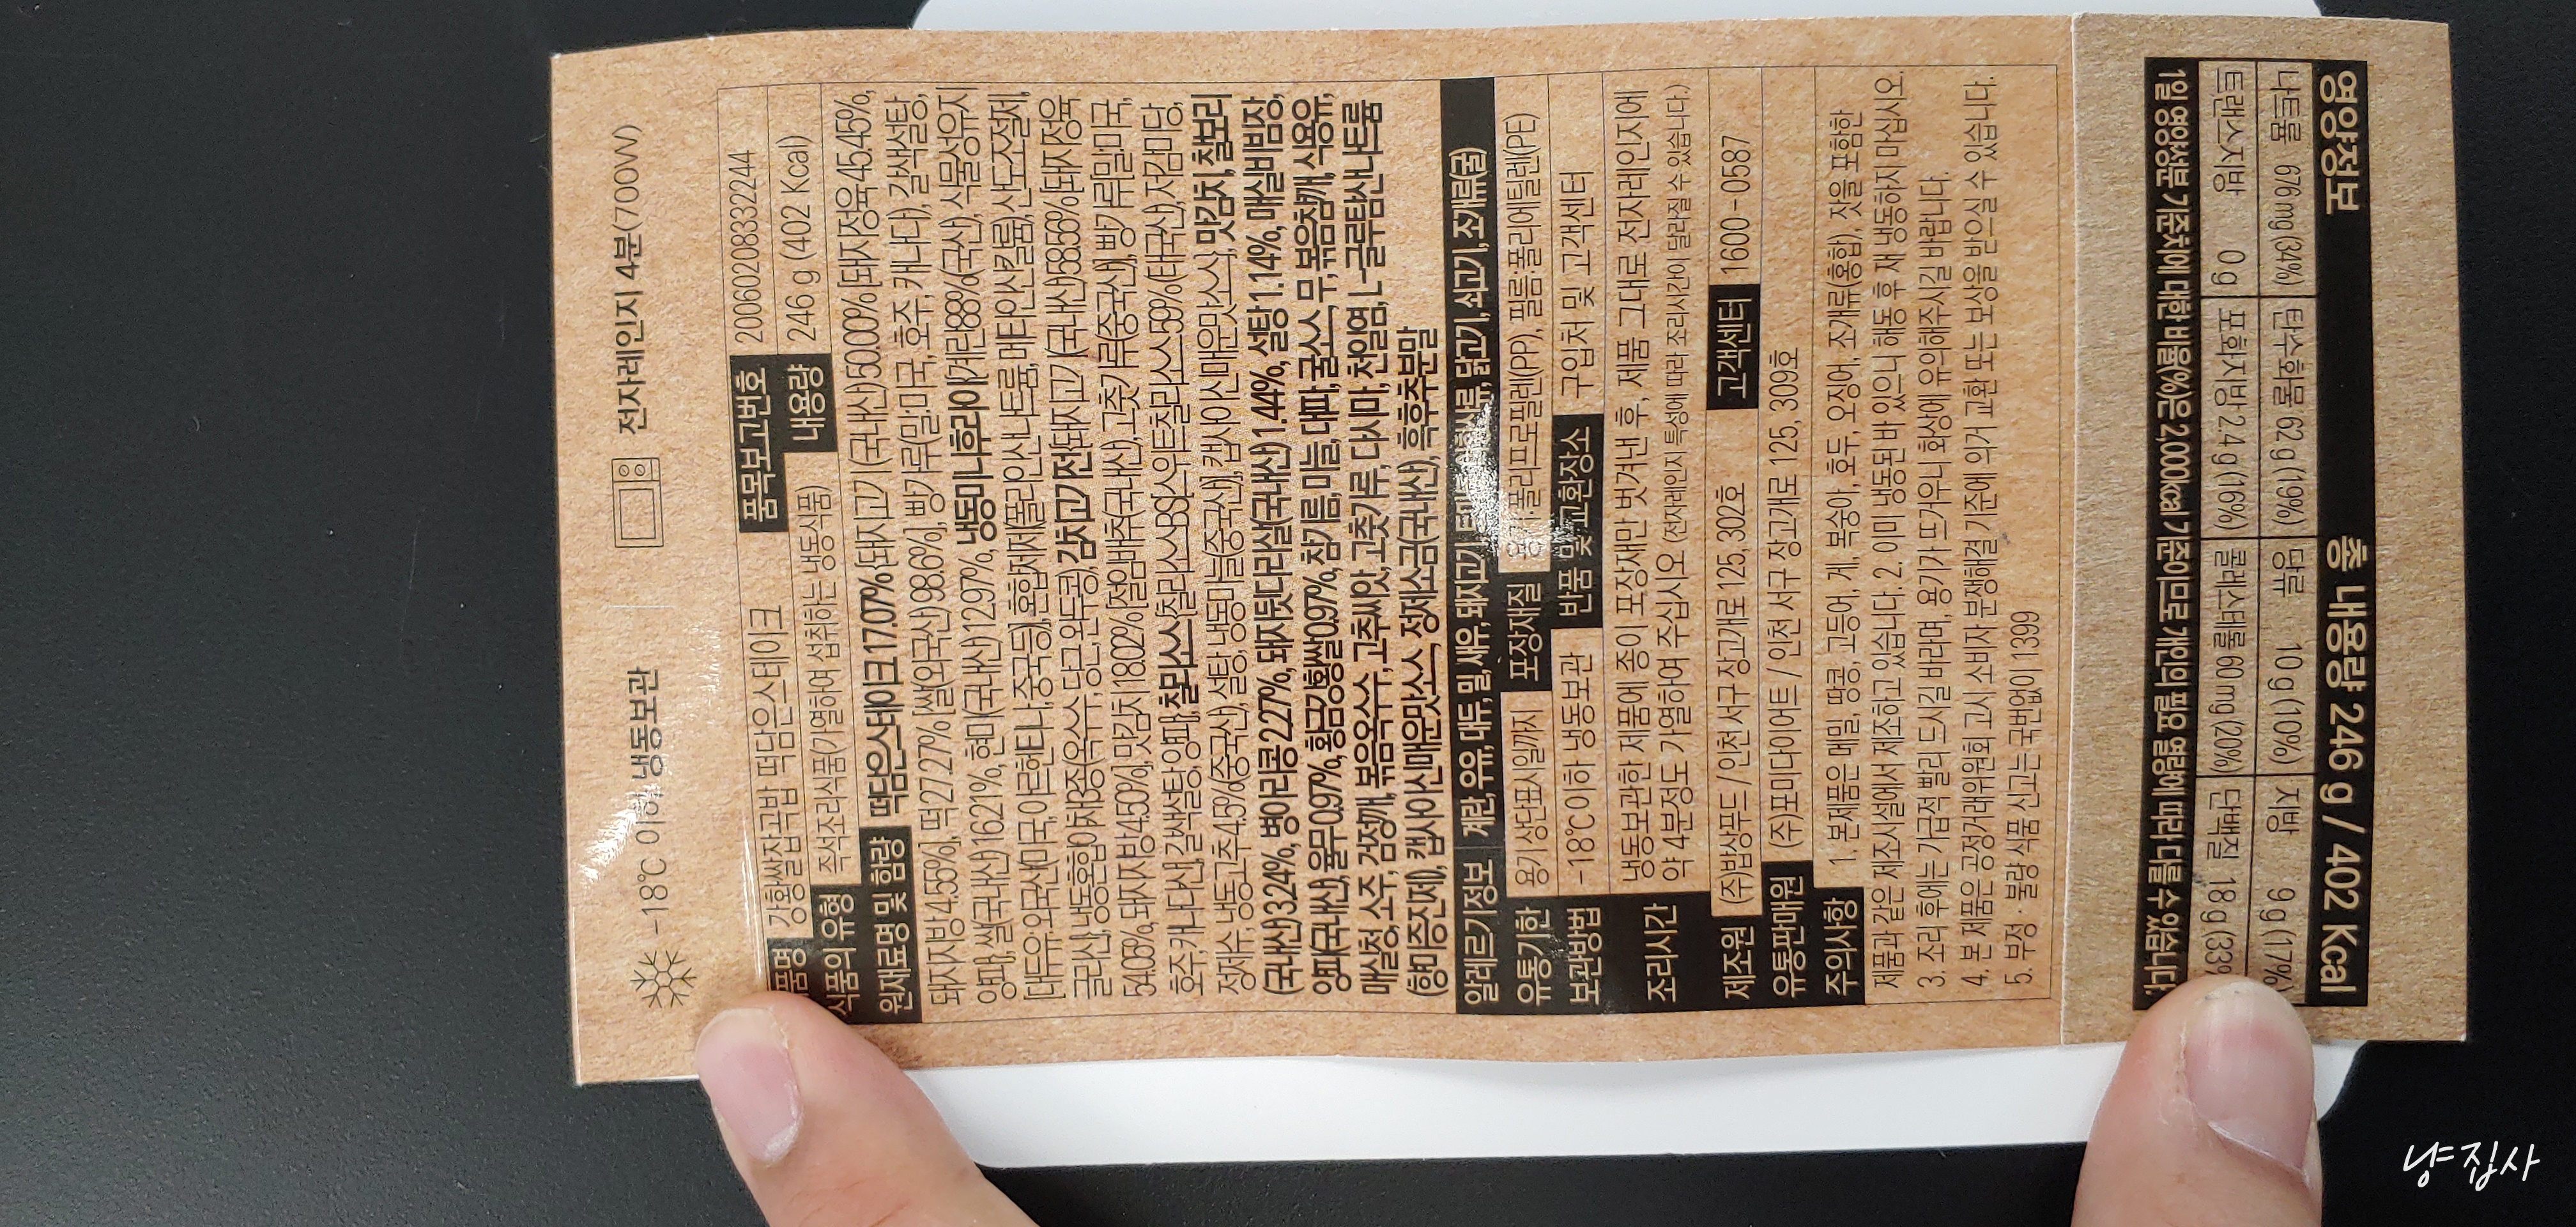 -18℃ 이하 냉동보관 전자레인지 4분(700W)
품명 강황쌀자고밥 떡담은스테이크 품목보고번호 20060208332244
식품의 유형 즉석조리식품(가열하여 섭취하는 냉동식품) 내용량 246 g (402 Kcal)
원재료명 및 함량 떡담은스테이크 17.07% [돼지고기(국내산) 50.00% [돼지정육 45.45%,
돼지지방 4.55%], 떡 27.27% [쌀(외국산) 98.6%], 빵가루(밀:미국, 호주, 캐나다), 갈색설탕,
양파], 쌀(국내산) 16.21%, 현미(국내산) 12.97%, 냉동미니후라이[계란88%(국산), 식물성유지
[대두유:외국산(미국, 아르헨티나, 중국 등)], 혼합제제(폴리인산나트륨, 메타인산칼륨), 산도조절제,
글리신], 냉동혼합야채3종(옥수수, 당근, 완두콩), 김치고기전[돼지고기(국내산)58.56%[돼지정육
54.05%, 돼지지방 4.50%], 맛김치 18.02% [절임배추(국내산), 고춧가루(중국산)], 빵가루[밀:미국,
호주, 캐나다산], 갈색설탕, 양파], 칠리소스[칠리소스BS[스위트칠리소스59%(태국산), 저감미당,
정제수, 냉동고추 4.5%(중국산), 설탕, 냉동마늘(중국산)], 캡사이신매운맛소스], 맛김치, 찰보리
(국내산) 3.24%, 병아리콩 2.27%, 돼지뒷다리살(국내산) 1.44%, 설탕 1.14%, 매실비빔장,
양파(국내산), 율무 0.97%, 황금강황쌀0.97%, 참기름, 마늘, 대파, 굴소스, 무, 볶음참깨, 식용유,
매실청, 소주, 검정깨, 볶음옥수수, 고추씨앗, 고춧가루, 다시마, 천일염, L-글루탐산나트륨
(향미증진제), 캡사이신매운맛소스, 정제소금(국내산), 흑후추분말
알레르기정보 계란, 우유, 대두, 밀, 새우, 돼지고기, 토마토, 아황산류, 닭고기, 쇠고기, 조개류(굴)
유통기한 용기 상단표시일까지 포장재질 용기:폴리프로필렌(PP), 필름:폴리에틸렌(PE)
보관방법 -18℃ 이하 냉동보관 반품 및 교환장소 구입처 및 고객센터
조리시간 냉동보관한 제품에 종이 포장재만 벗겨낸 후, 제품 그대로 전자레인지에
약 4분정도 가열하여 주십시오 (전자레인지 특성에 따라 조리시간이 달라질 수 있습니다.)
제조원 (주)밥상푸드 / 인천 서구 장고개로 125, 302호 고객센터 1600-0587
유통판매원 (주)포미다이어트 / 인천 서구 장고개로 125, 309호
주의사항 1. 본제품은 메밀, 땅콩, 고등어, 게, 복숭아, 호두, 오징어, 조개류(홍합), 잣을 포함한
제품과 같은 제조시설에서 제조하고 있습니다. 2. 이미 냉동된 바 있으니 해동 후 재 냉동하지 마십시오.
3. 조리 후에는 가급적 빨리 드시길 바라며, 용기가 뜨거우니 화상에 유의해주시길 바랍니다.
4. 본 제품은 공정거래위원회 고시 소비자 분쟁해결 기준에 의거 교환 또는 보상을 받으실 수 있습니다.
5. 부정·불량 식품 신고는 국번없이 1399
영양정보 총 내용량 246 g / 402 Kcal
나트륨 676 mg (34%) 탄수화물 62 g (19%) 당류 10 g (10%) 지방 9 g (17%)
트랜스지방 0 g 포화지방 2.4 g (16%) 콜레스테롤 60 mg (20%) 단백질 18 g (33%
1일 영양성분 기준치에 대한 비율(%)은 2,000kcal 기준이므로 개인의 필요 열량에 따라 다를 수 있습니다.
냥집사